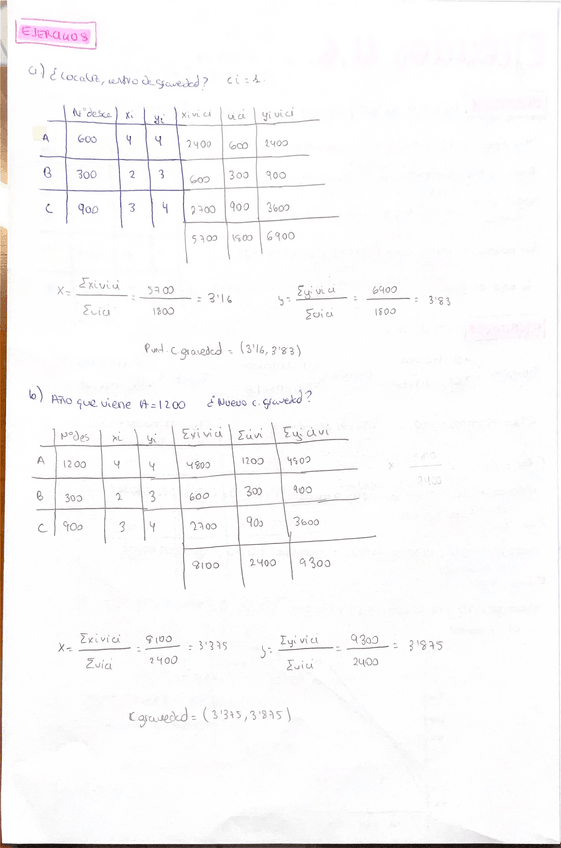 EJERCICIOS
a) ¿Localiz, centro de gravedad? ci = 1.
Nº desc xi yi xi vi ci vi ci yi vi ci
A 600 4 4 2400 600 2400
B 300 2 3 600 300 900
C 900 3 4 2700 900 3600
5700 1800 6900
x = Σxivici / Σvici = 5700 / 1800 = 3'16 y = Σyivici / Σvici = 6900 / 1800 = 3'83
Punt. C. gravedad = (3'16, 3'83)
b) Año que viene A = 1200 ¿Nuevo c. gravedad?
Nº des xi yi Σxivici Σcivi Σyicivi
A 1200 4 4 4800 1200 4800
B 300 2 3 600 300 900
C 900 3 4 2700 900 3600
8100 2400 9300
x = Σxivici / Σvici = 8100 / 2400 = 3'375 y = Σyivici / Σvici = 9300 / 2400 = 3'875
C gravedad = (3'375, 3'875)